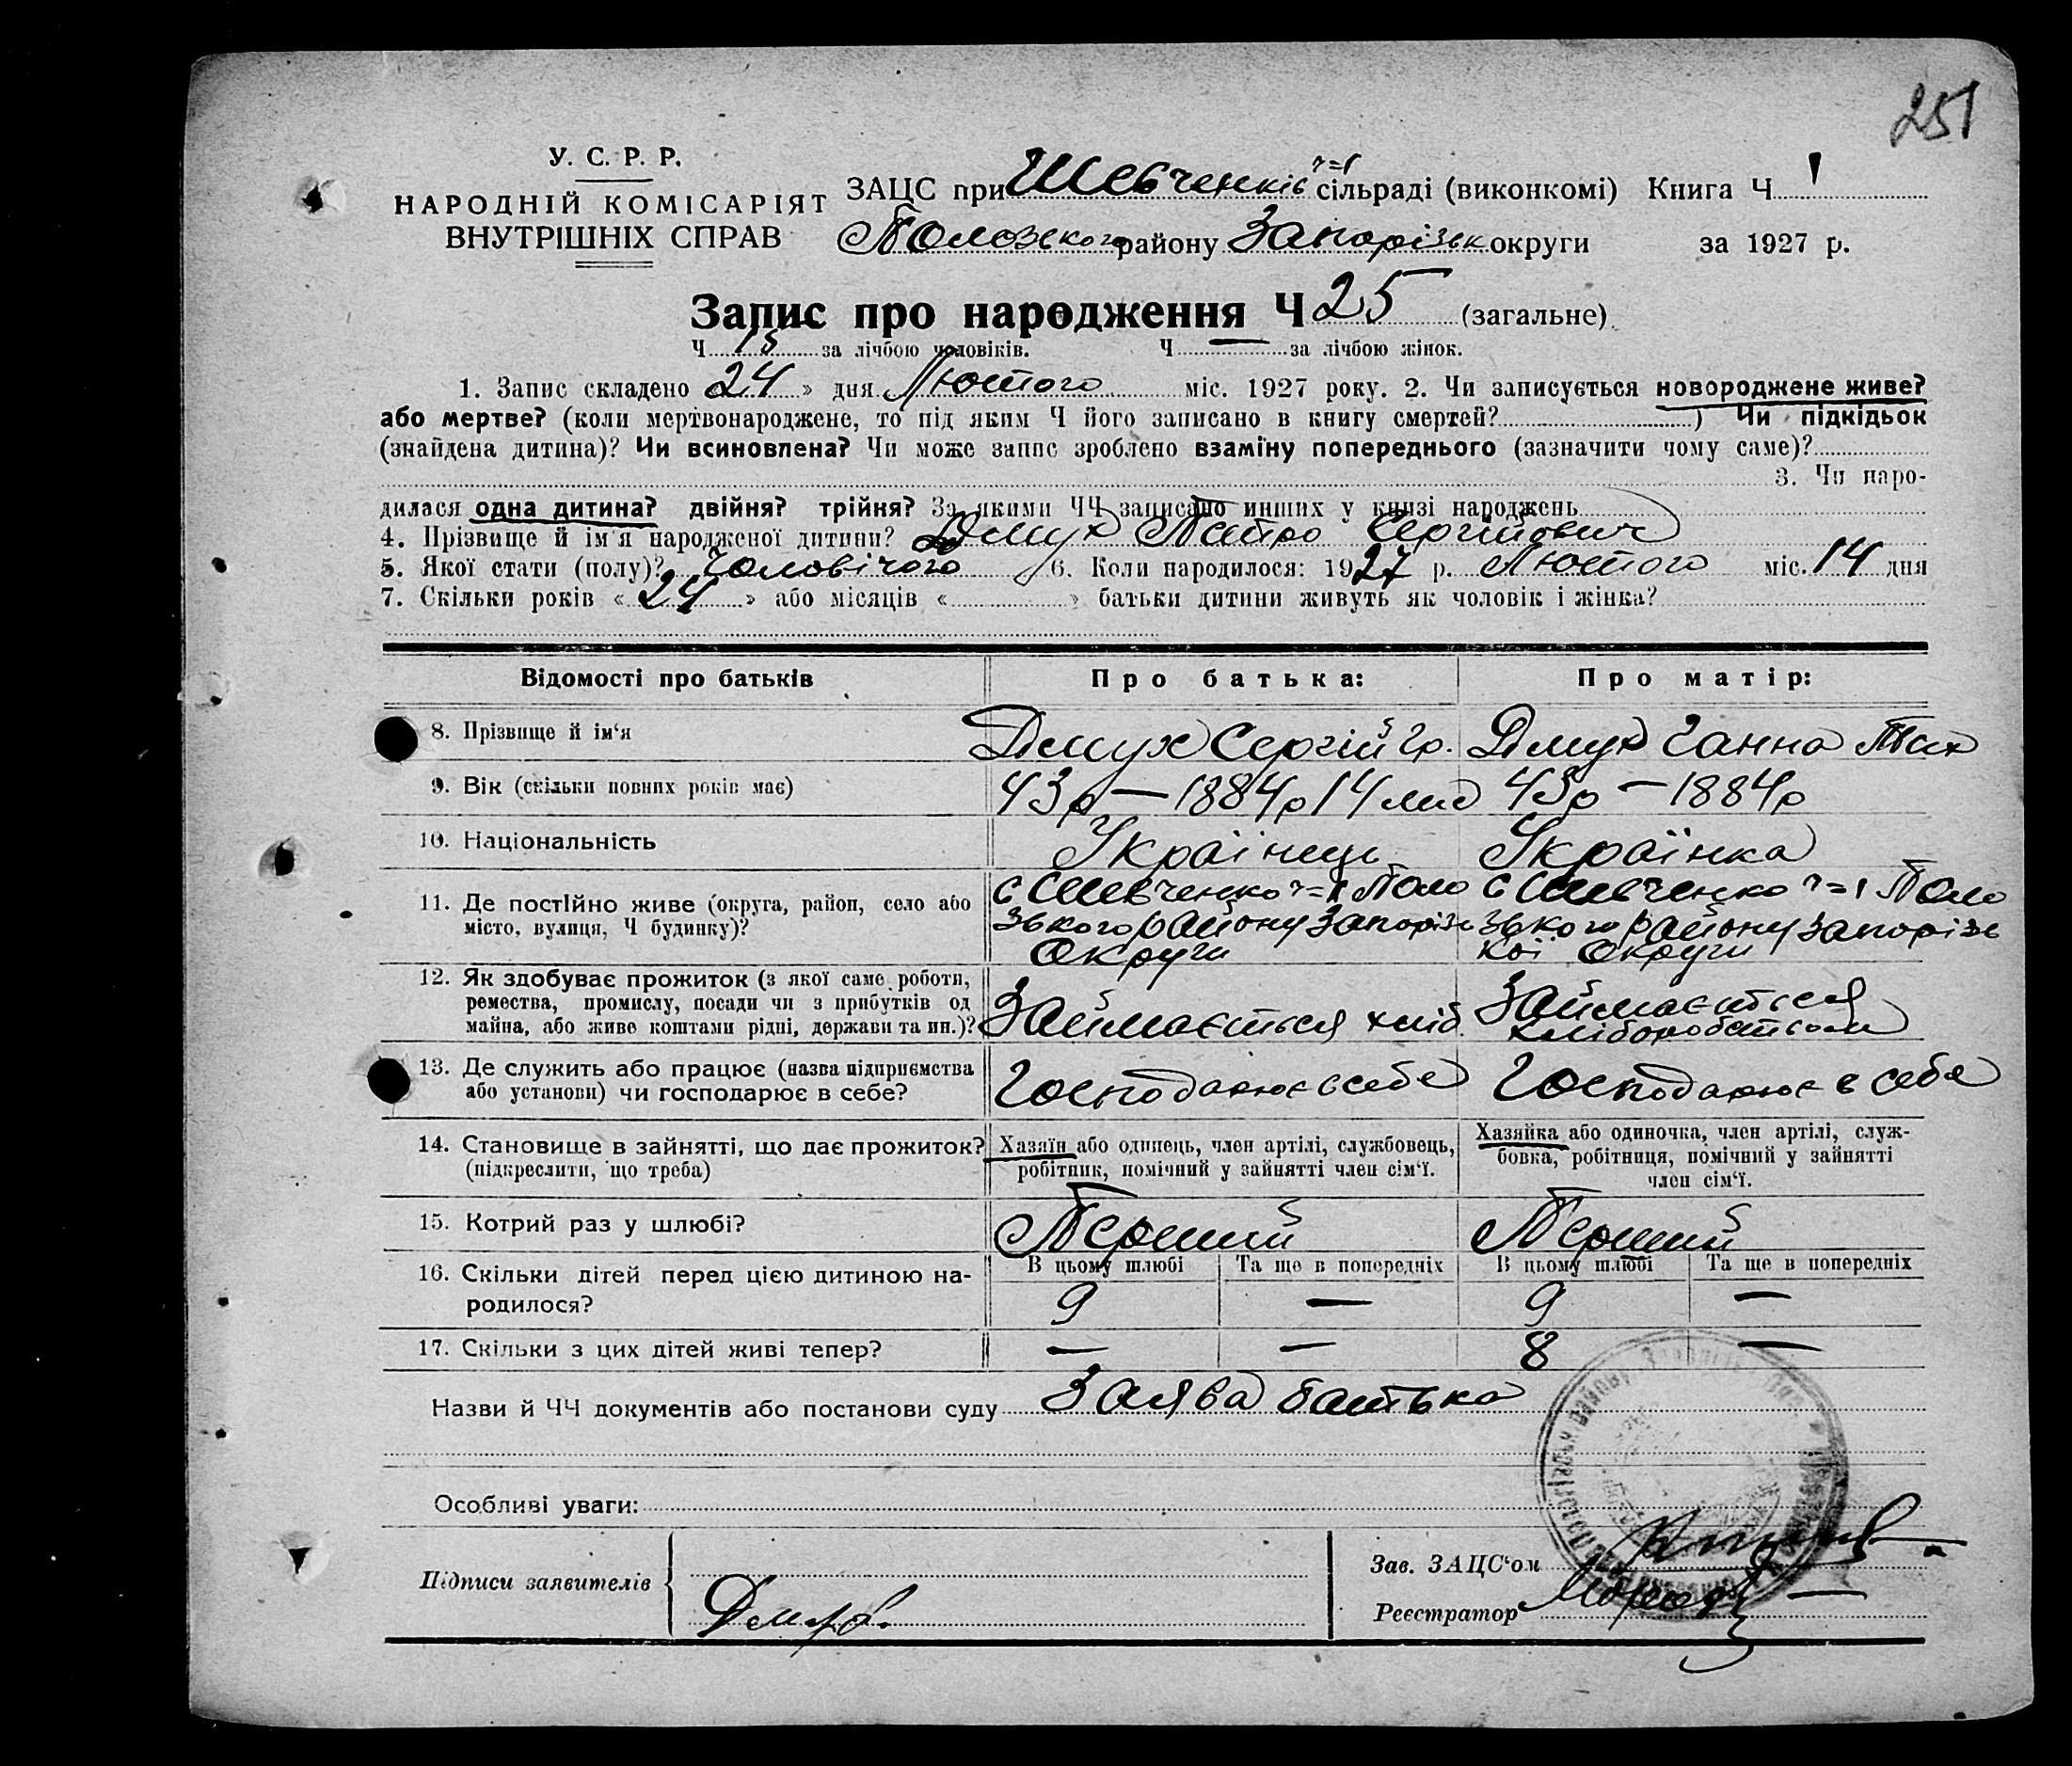 251
У. С. Р. Р.
НАРОДНІЙ КОМІСАРІЯТ
ВНУТРІШНІХ СПРАВ
ЗАЦС при Шевченків ч=1 сільраді (виконкомі) Книга Ч 1
Пологзького району Запорізьк округи за 1927 р.
Запис про народження Ч 25 (загальне)
Ч 15 за лічбою чоловіків. Ч — за лічбою жінок.
1. Запис складено 24 » дня Лютого міс. 1927 року. 2. Чи записується новороджене живе?
або мертве? (коли мертвонароджене, то під яким Ч його записано в книгу смертей? ) Чи підкідьок
(знайдена дитина)? Чи всиновлена? Чи може запис зроблено взаміну попереднього (зазначити чому саме)?
3. Чи наро-
дилася одна дитина? двійня? трійня? За якими ЧЧ записано инших у книзі народжень
4. Прізвище й ім'я народженої дитини? Дмух Петро Сергійович
5. Якої стати (полу)? Чоловічого 6. Коли народилося: 1927 р. Лютого міс. 14 дня
7. Скільки років « 24 » або місяців « » батьки дитини живуть як чоловік і жінка?
Відомості про батьків Про батька: Про матір:
8. Прізвище й ім'я Дмух Сергій Гр. Дмух Ганна Тих
9. Вік (скільки повних років має) 43р — 1884р 14 43р — 1884р
10. Національність Українець Українка
11. Де постійно живе (округа, район, село або
місто, вулиця, Ч будинку)?
с Шевченко ч=1 Поло
зького району Запорізь
Округи
с Шевченко ч=1 Поло
зького району Запорізь
кої Округи
12. Як здобуває прожиток (з якої саме роботи,
ремества, промислу, посади чи з прибутків од
майна, або живе коштами рідні, держави та ин.)?
Займається хліб.
Займається
хліборобством
13. Де служить або працює (назва підприємства
або установи) чи господарює в себе?
Господарює в себе Господарює в себе
14. Становище в зайнятті, що дає прожиток?
(підкреслити, що треба)
Хазяїн або одинець, член артілі, службовець,
робітник, помічний у зайнятті член сім'ї.
Хазяйка або одиночка, член артілі, служ-
бовка, робітниця, помічний у зайнятті
член сім'ї.
15. Котрий раз у шлюбі? Перший Перший
16. Скільки дітей перед цією дитиною на-
родилося?
В цьому шлюбі Та ще в попередніх В цьому шлюбі Та ще в попередніх
9 — 9 —
17. Скільки з цих дітей живі тепер? — — 8 —
Назви й ЧЧ документів або постанови суду Заява батька
Особливі уваги:
Підписи заявителів
Зав. ЗАЦС'ом
Реєстратор